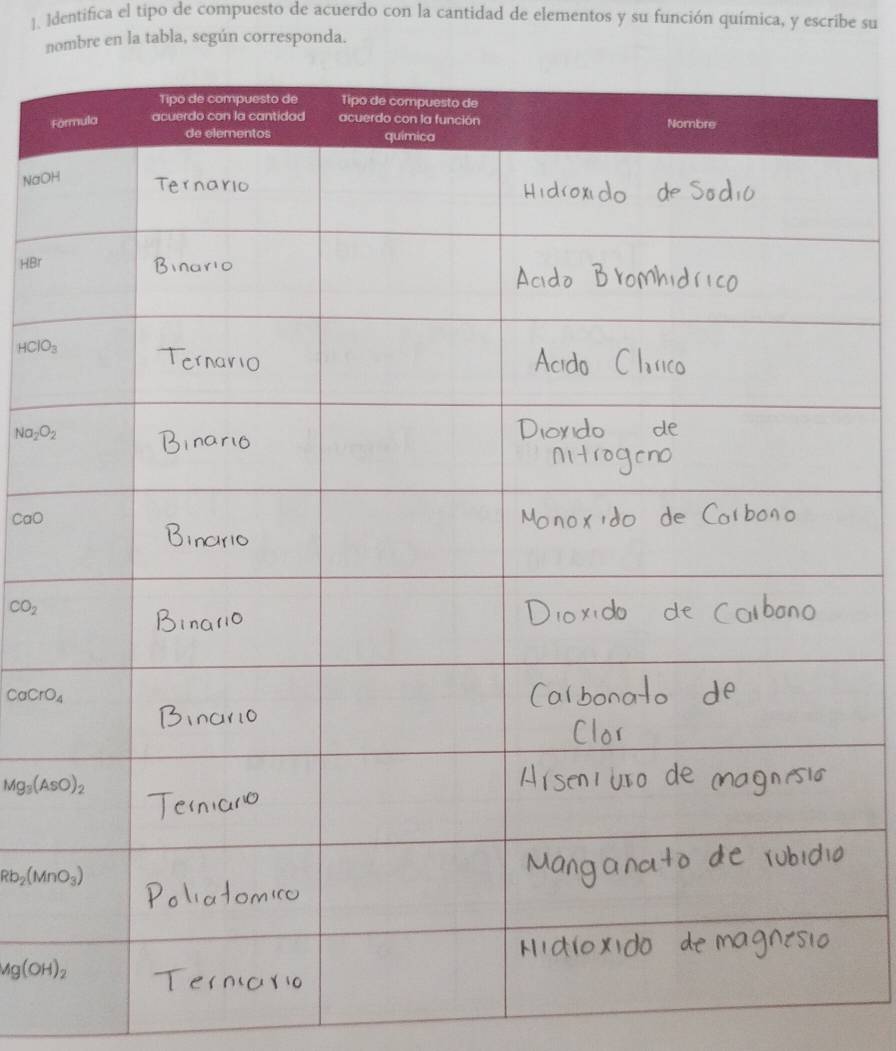 1. Identifica el tipo de compuesto de acuerdo con la cantidad de elementos y su función química, y escribe su
nombre en la tabla, según corresponda.
Fórmula
Tipo de compuesto de
acuerdo con la cantidad
de elementos
Tipo de compuesto de
acuerdo con la función
química
Nombre
NaOH Ternario Hidroxido de Sodio
HBr Binario Acido Bromhidrico
HClO₃ Ternario Acido Clorico
Na₂O₂ Binario Dioxido de
nitrogeno
CaO Binario Monoxido de Carbono
CO₂ Binario Dioxido de Carbono
CaCrO₄ Binario Carbonato de
Clor
Mg₃(AsO)₂ Terniario de magnesio
Rb₂(MnO₃) Poliatomico Manganato de rubidio
Mg(OH)₂ Terniario Hidroxido de magnesio